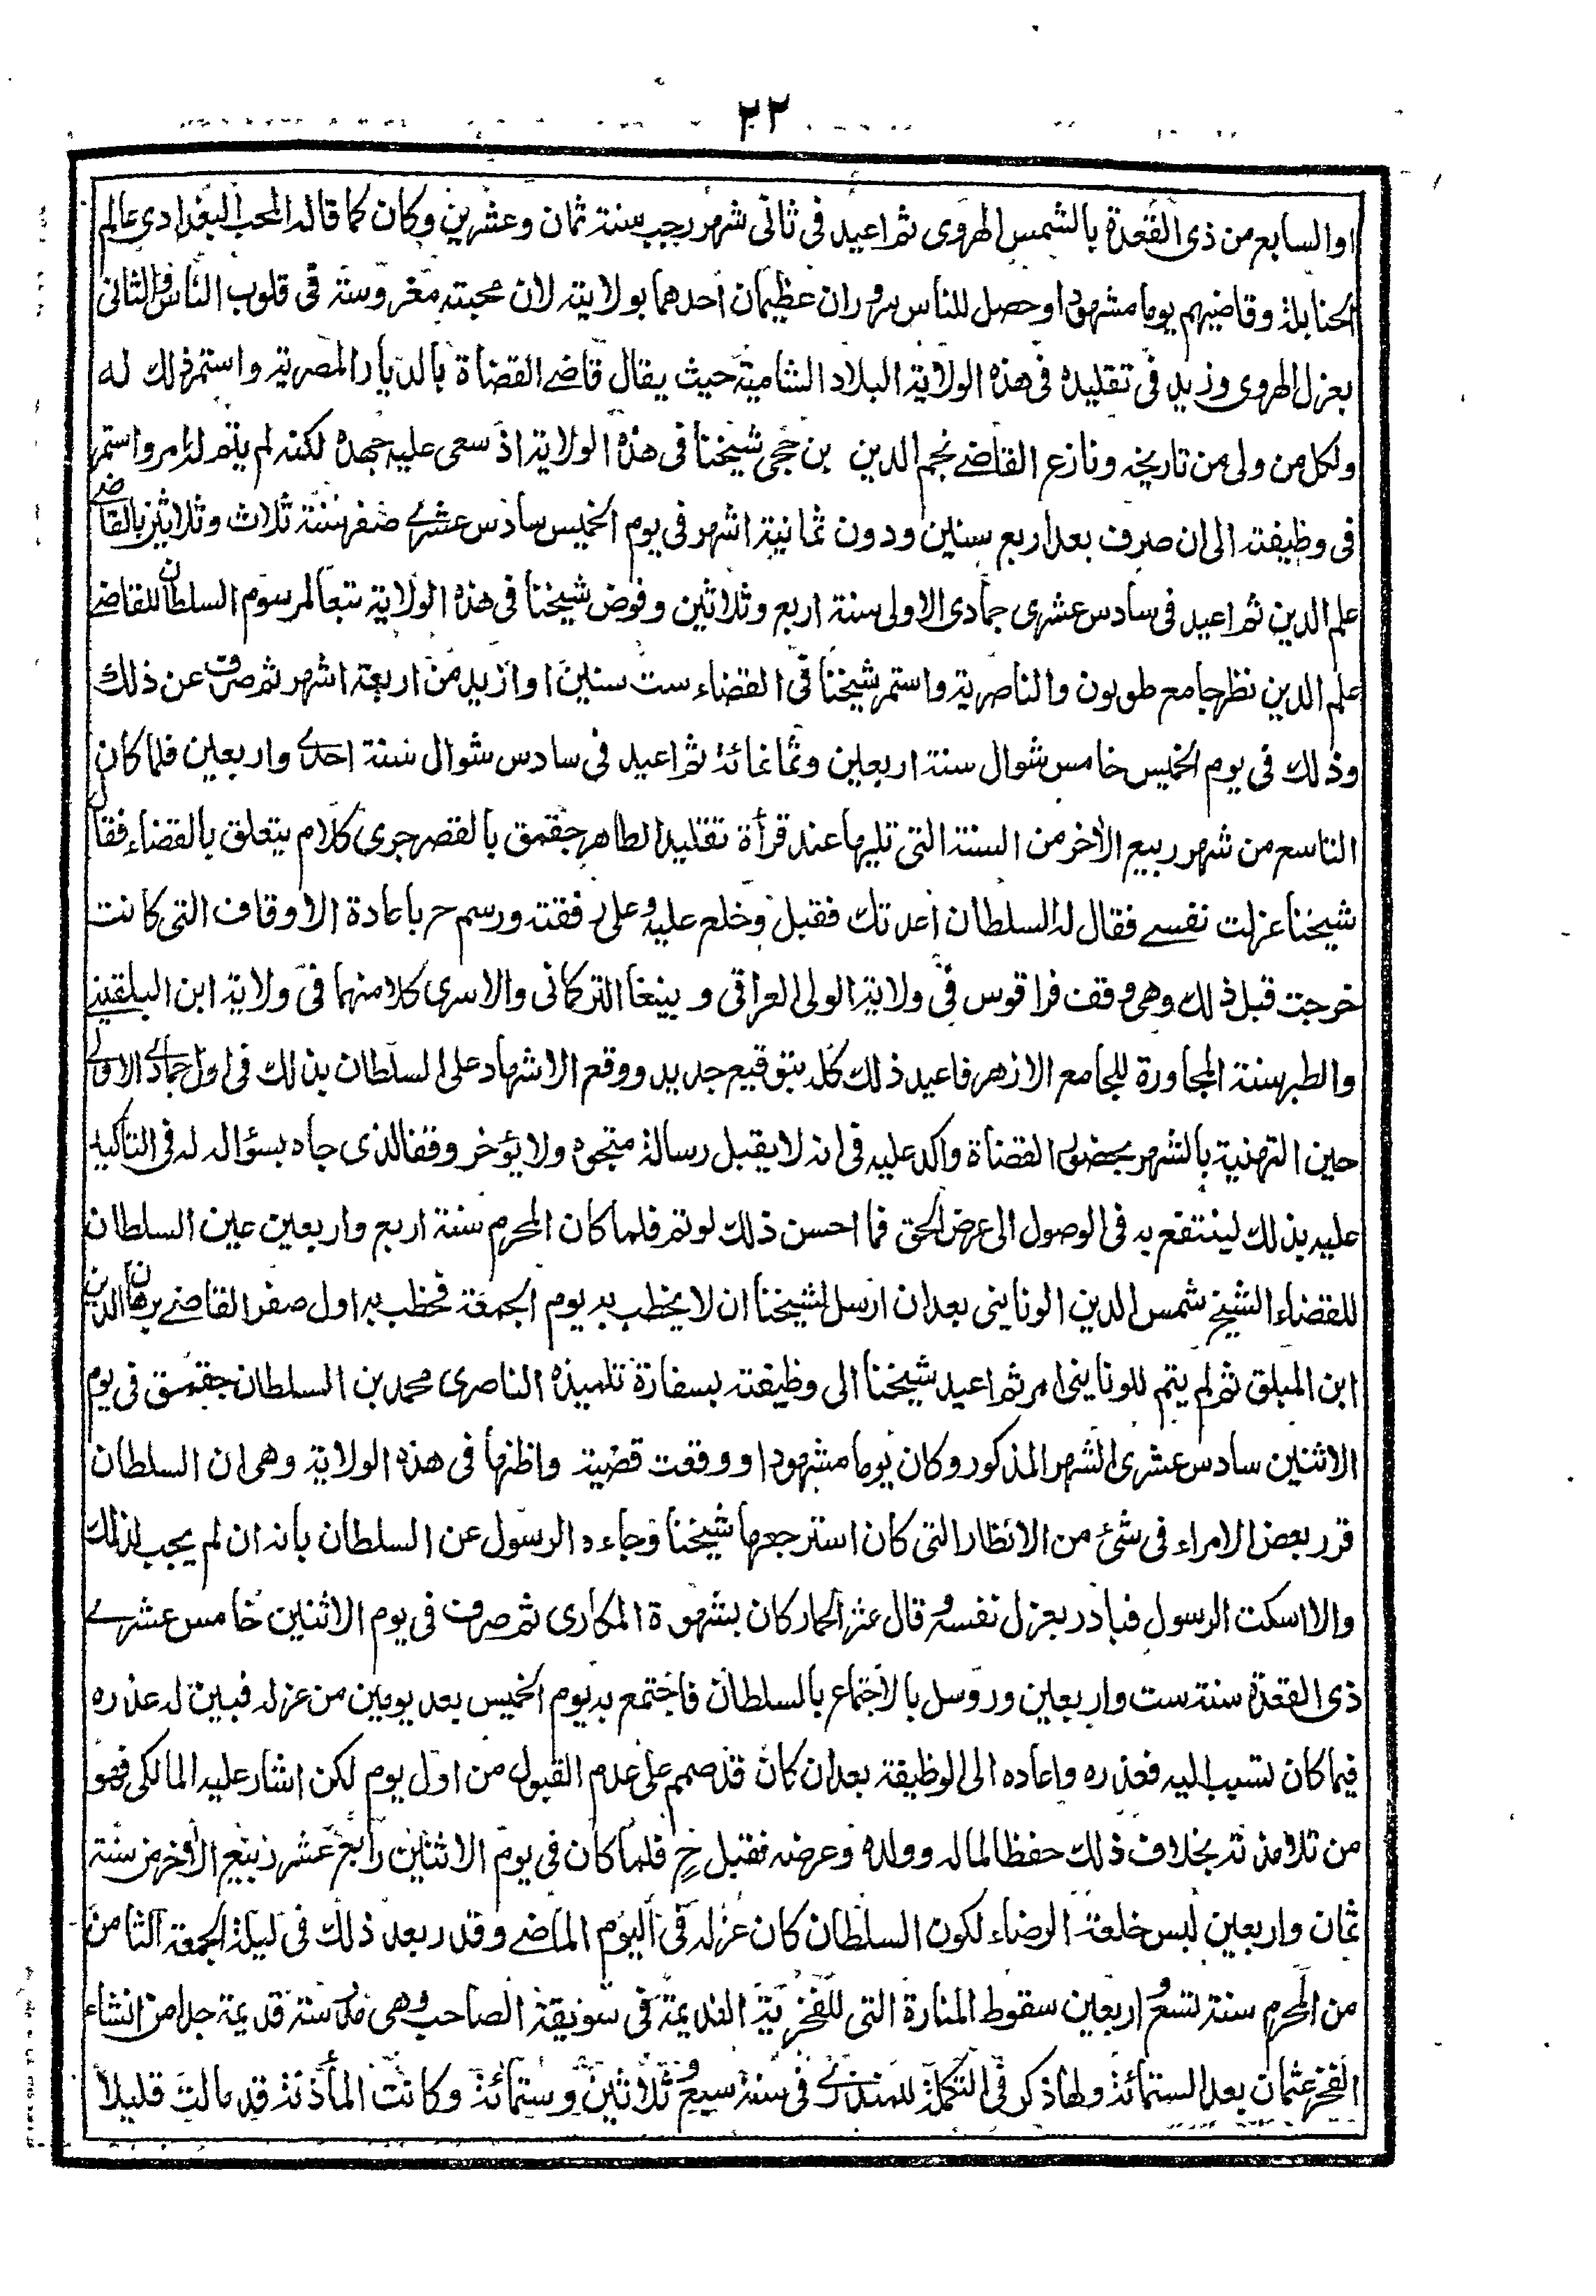 ٢٢
او السابع من ذى القعدة بالشمس الهروى ثم اعيد فى ثانى شهر رجب سنة ثمان وعشرين وكان كما قاله المحب البغدادى عالم
الحنابلة وقاضيهم يوما مشهودا وحصل للناس سروران عظيمان احدهما بولايته لان محبته مغروسة فى قلوب الناس والثانى
بعزل الهروى وزيد فى تقليده فى هذه الولاية البلاد الشامية حيث يقال قاضى القضاة بالديار المصرية واستمر ذلك له
ولكل من ولى من تاريخه ونازع القاضى نجم الدين بن حجى شيخنا فى هذه الولاية اذ سعى عليه جهده لكنه لم يتم له امر واستمر
فى وظيفته الى ان صرف بعد اربع سنين ودون ثمانية اشهر فى يوم الخميس سادس عشرى صفر سنة ثلاث وثلاثين بالقاضى
علم الدين ثم اعيد فى سادس عشرى جمادى الاولى سنة اربع وثلاثين وفوض شيخنا فى هذه الولاية تبعا لمرسوم السلطان للقاضى
علم الدين نظر جامع طولون والناصرية واستمر شيخنا فى القضاء ست سنين او ازيد من اربعة اشهر ثم صرف عن ذلك
وذلك فى يوم الخميس خامس شوال سنة اربعين وثمانمائة ثم اعيد فى سادس شوال سنة احدى واربعين فلما كان
التاسع من شهر ربيع الآخر من السنة التى تليها عند قرأة تقليد الظاهر جقمق بالقصر جرى كلام يتعلق بالقضاء فقال
شيخنا عزلت نفسى فقال له السلطان أعدتك فقبل وخلع عليه وعلى رفقته ورسم حر باعادة الاوقاف التى كانت
خرجت قبل ذلك وهى وقف قراقوس فى ولاية الولى العراقى وبيبغا التركمانى والاسرى كلا منهما فى ولاية ابن البلقينى
والطبرسنة المجاورة للجامع الازهر فاعيد ذلك كله بتوقيع جديد ووقع الاشهاد على السلطان بذلك فى اول جمادى الاولى
حين التهنية بالشهر بحضور القضاة واكد عليه فى انه لا يقبل رسالة متجوه ولا يؤخر وقفا لذى جاه بسؤاله له فى التاكيد
عليه بذلك لينتفع به فى الوصول الى عرض الحق فما احسن ذلك لو تم فلما كان المحرم سنة اربع واربعين عين السلطان
للقضاء الشيخ شمس الدين الونايى بعد ان ارسل لشيخنا ان لا يخطب به يوم الجمعة فخطب به اول صفر القاضى برهان الدين
ابن الميلق ثم لم يتم للونايى امر ثم اعيد شيخنا الى وظيفته بسفارة تلميذه الناصرى محمد بن السلطان جقمق فى يوم
الاثنين سادس عشرى الشهر المذكور وكان يوما مشهودا ووقعت قضية واظنها فى هذه الولاية وهى ان السلطان
قرر بعض الامراء فى شئ من الانظار التى كان استرجعها شيخنا وجاءه الرسول عن السلطان بانه ان لم يجب لذلك
والا اسكت الرسول فبادر بعزل نفسه وقال عثر الحمار كان بشهوة المكارى ثم صرف فى يوم الاثنين خامس عشرى
ذى القعدة سنة ست واربعين وروسل بالاجتماع بالسلطان فاجتمع به يوم الخميس بعد يومين من عزله فبين له عذره
فيما كان نسب اليه فعذره واعاده الى الوظيفة بعد ان كان قد صمم على عدم القبول من اول يوم لكن اشار عليه المالكى فهو
من تلامذته بخلاف ذلك حفظا لماله وولده وعرضه فقبل ح فلما كان فى يوم الاثنين رابع عشر ربيع الآخر من سنة
ثمان واربعين لبس خلعة الرضاء لكون السلطان كان عزله فى اليوم الماضى وقدر بعد ذلك فى ليلة الجمعة الثامن
من المحرم سنة تسع واربعين سقوط المنارة التى للفخرية القديمة فى سويقة الصاحب وهى مدرسة قديمة جدا من انشاء
الفخر عثمان بعد الستمائة ولها ذكر فى التكملة للمنذرى فى سنة سبع وثلاثين وستمائة وكانت المأذنة قد مالت قليلا